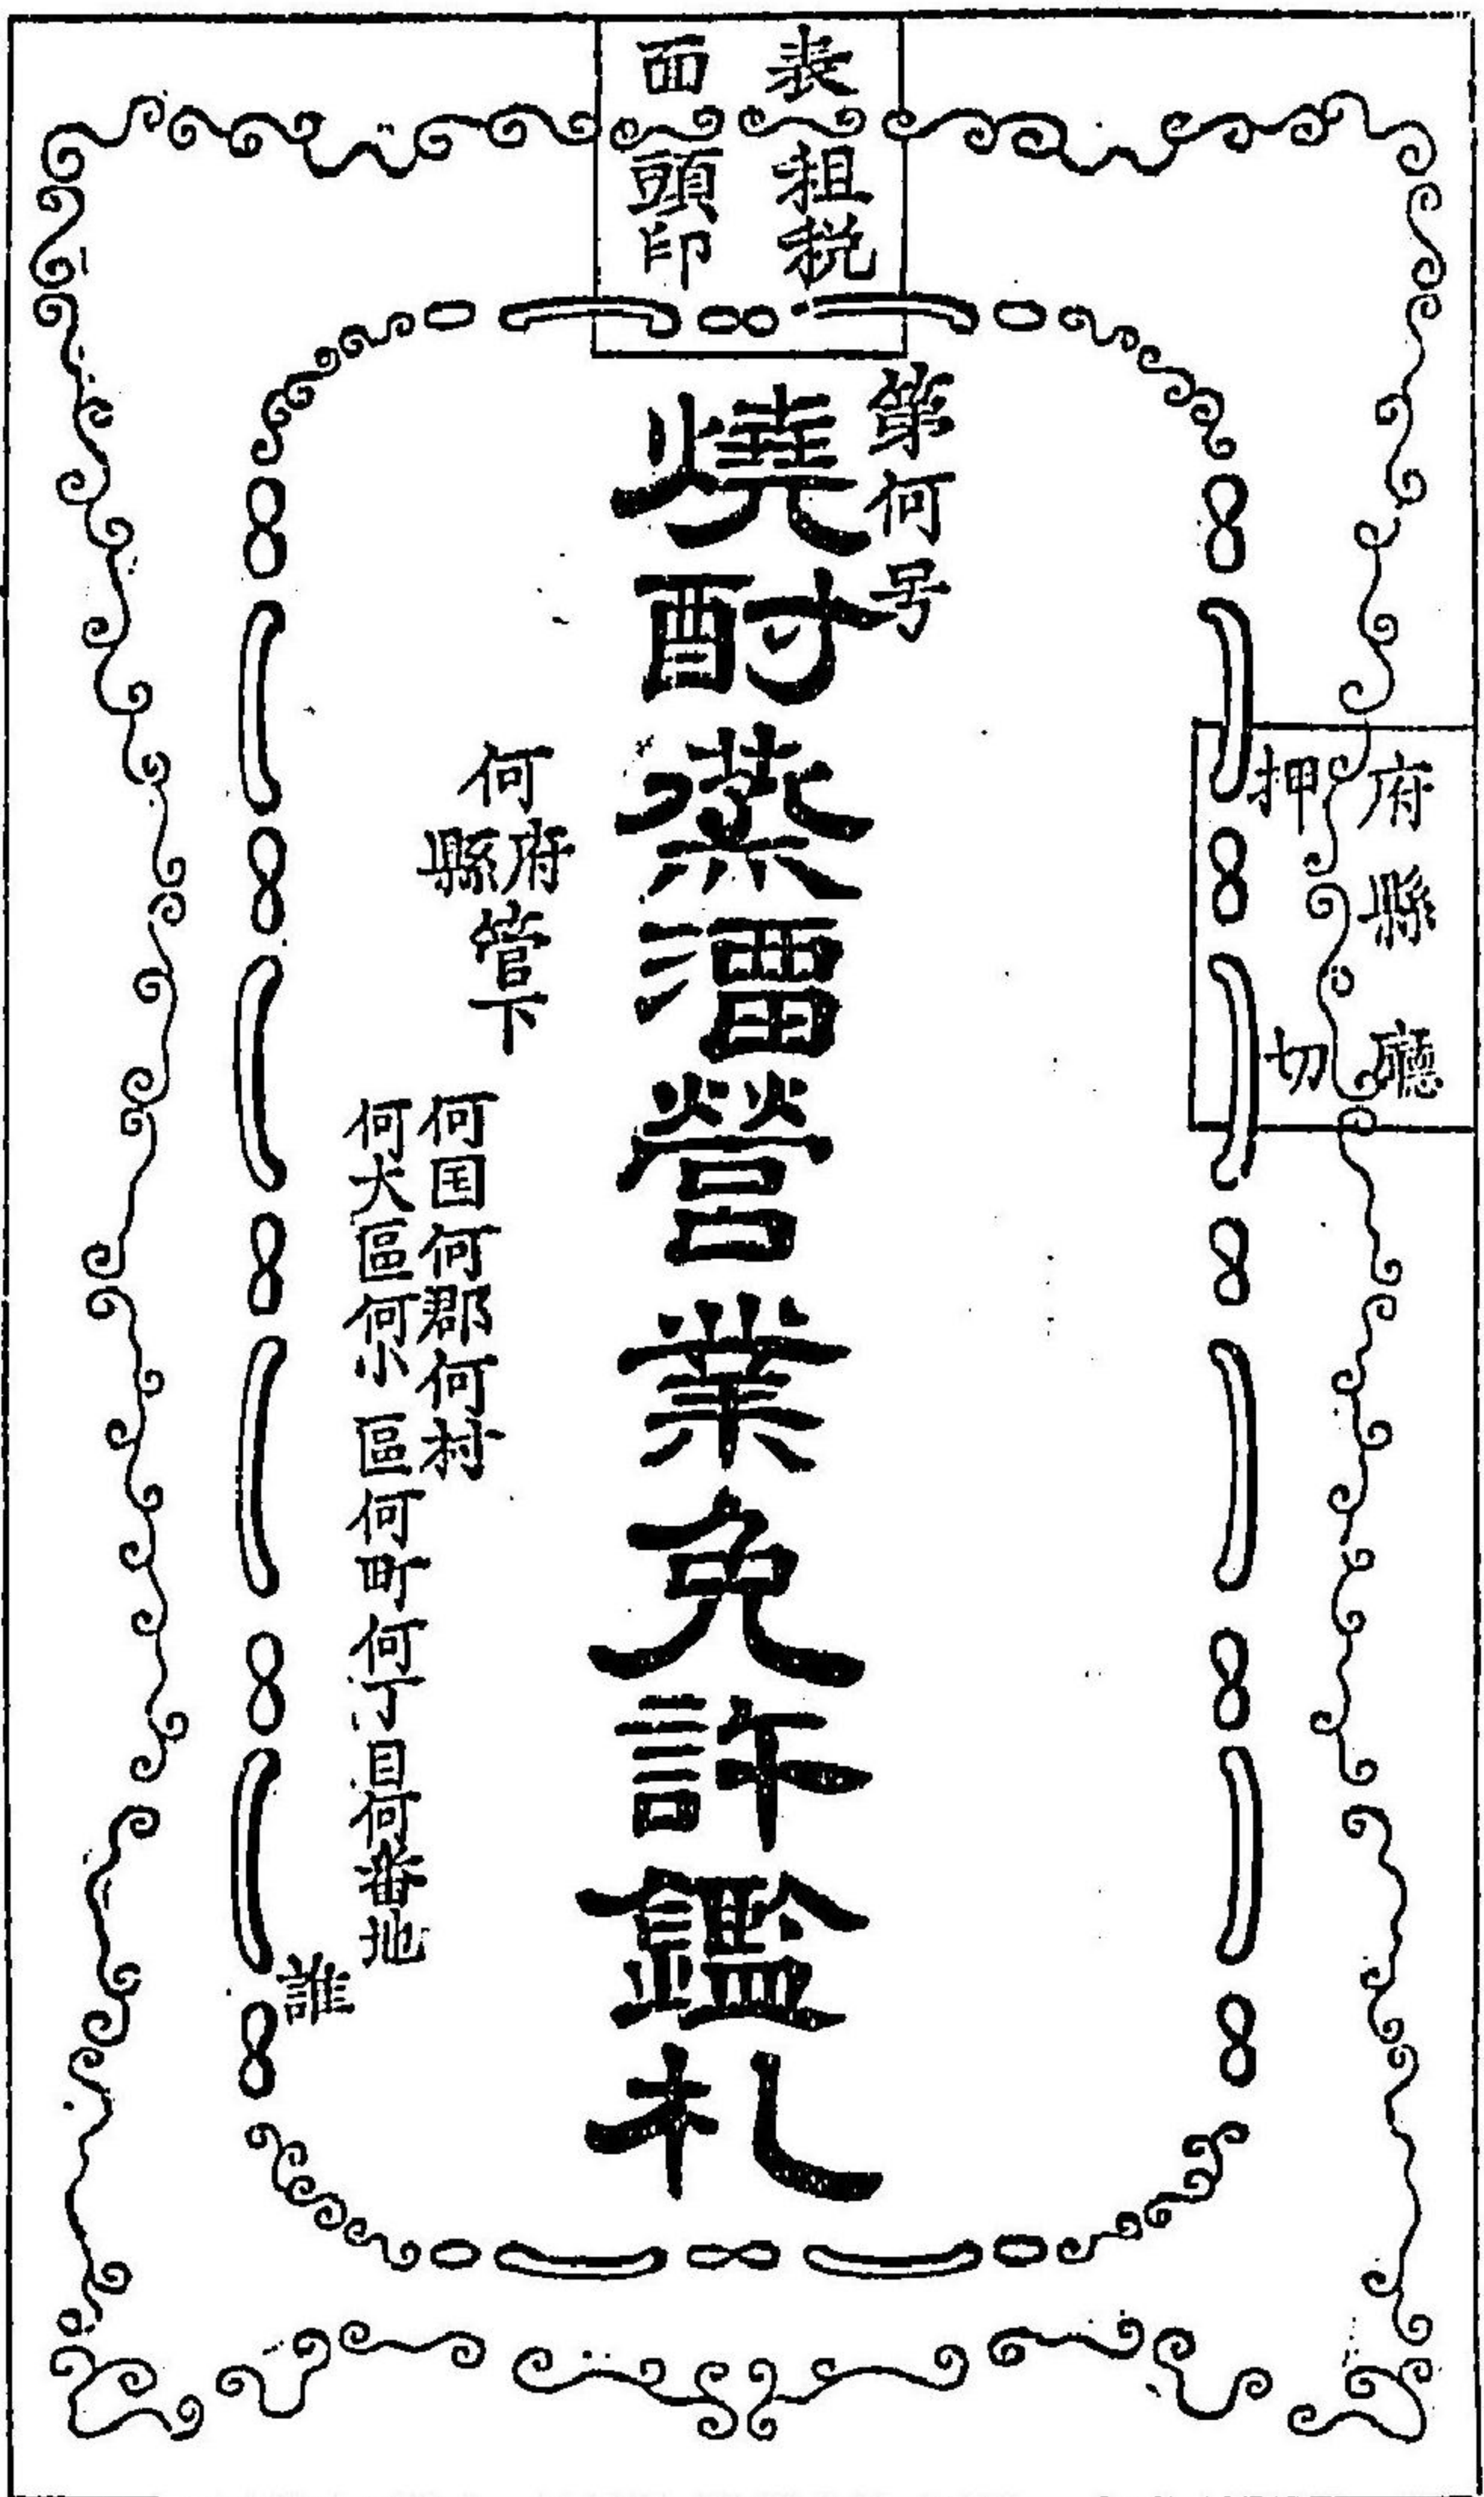 表面
租税
頭印
府縣廳
押切
第何号
燒酎蒸溜營業免許鑑札
何府縣管下
何国何郡何村
何大區何小區何町何丁目何番地
誰